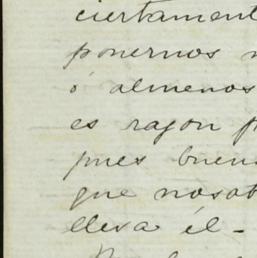 ciertament
ponernos
ó almenos
es razon p
pues buen
que nosot
llesa él-